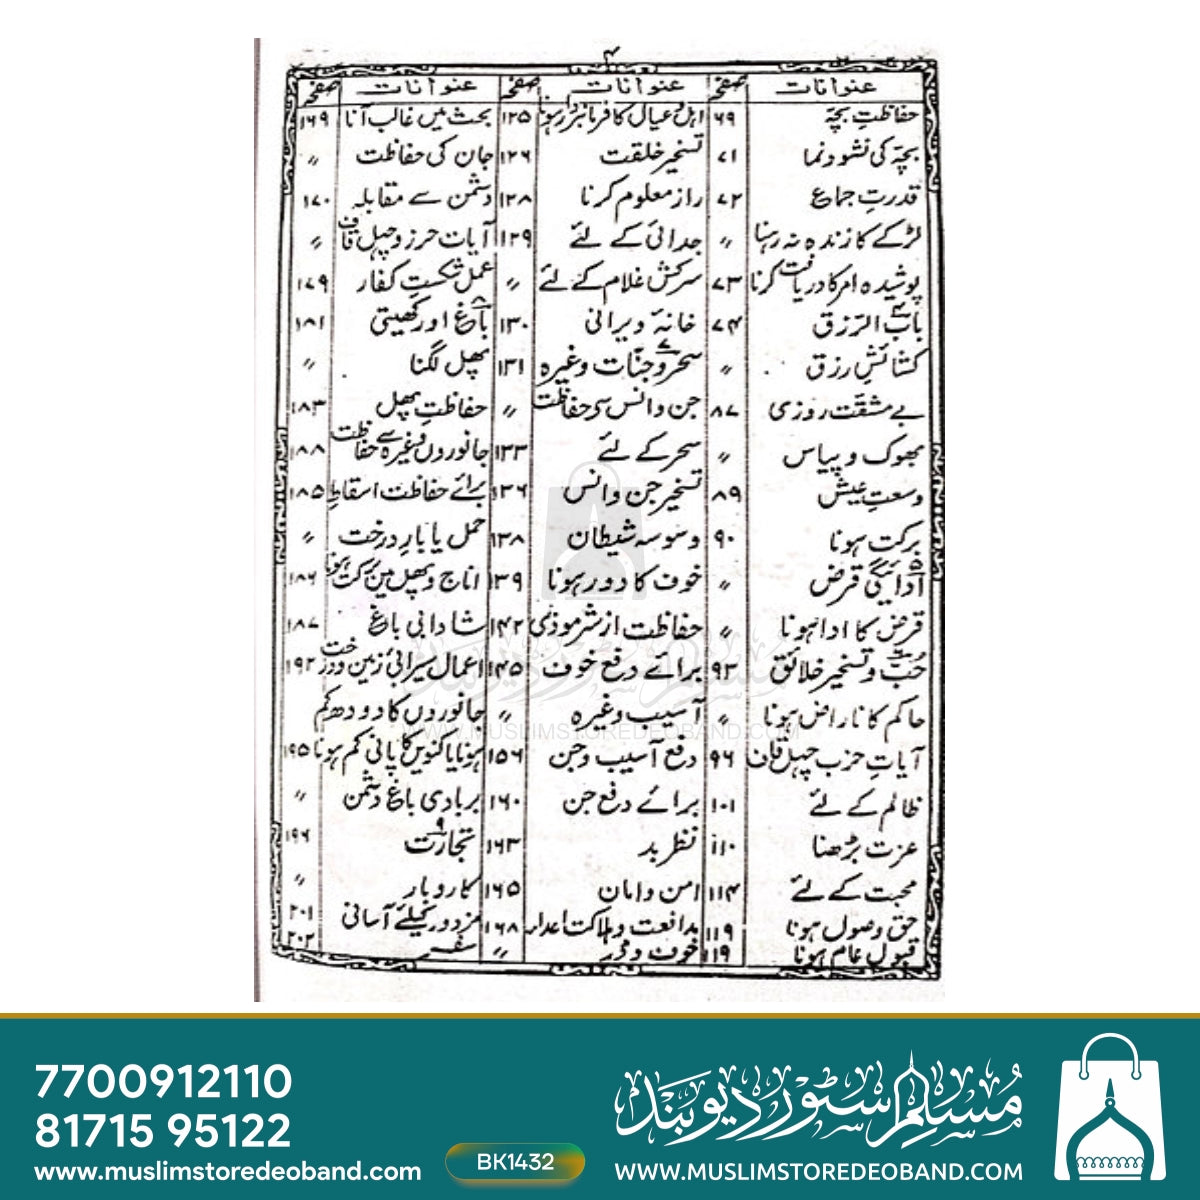 ۴
عنوانات صفحہ عنوانات صفحہ عنوانات صفحہ
حفاظتِ بچّہ ۶۹ اہل و عیال کا فرمانبردار ہونا ۱۲۵ بحث میں غالب آنا ۱۶۹
بچّہ کی نشو و نما ۷۱ تسخیر خلقت ۱۲۶ جان کی حفاظت ״
قدرتِ جماع ۷۲ راز معلوم کرنا ۱۲۸ دشمن سے مقابلہ ۱۷۰
لڑکے کا زندہ نہ رہنا ״ جدائی کے لئے ۱۲۹ آیات حرز و چہل قاف ״
پوشیدہ امر کا دریافت کرنا ۷۳ سرکش غلام کے لئے ״ عمل شکستِ کفار ۱۷۹
باب الرزق ۷۴ خانہ ویرانی ۱۳۰ باغ اور کھیتی ۱۸۱
کشائشِ رزق ״ سحر و جنّات وغیرہ ۱۳۱ پھل لگنا ״
بے مشقت روزی ۸۷ جن و انس سے حفاظت ״ حفاظتِ پھل ۱۸۳
بھوک و پیاس ״ سحر کے لئے ۱۳۳ جانوروں وغیرہ سے حفاظت ۱۸۸
وسعتِ عیش ۸۹ تسخیر جن و انس ۱۳۶ برائے حفاظت اسقاط ۱۸۵
برکت ہونا ۹۰ وسوسہ شیطان ۱۳۸ حمل یا بار درخت ״
ادائیگی قرض ״ خوف کا دور ہونا ۱۳۹ اناج و پھل میں برکت ہونا ۱۸۶
قرض کا ادا ہونا ״ حفاظت از شر موذی ۱۴۲ شادابی باغ ۱۸۷
حُب و تسخیر خلائق ۹۳ برائے دفع خوف ۱۴۵ اعمال سیرابئ زمین و درخت ۱۹۲
حاکم کا ناراض ہونا ״ آسیب وغیرہ ״ جانوروں کا دودھ کم
آیاتِ حزب چہل قاف ۹۶ دفع آسیب و جن ۱۵۶ ہونا یا کنویں کا پانی کم ہونا ۱۹۵
ظالم کے لئے ۱۰۱ برائے دفع جن ۱۶۰ بربادی باغ دشمن ״
عزت بڑھنا ۱۱۰ نظر بد ۱۶۳ تجارت ۱۹۶
محبت کے لئے ۱۱۴ امن و امان ۱۶۵ کاروبار ״
حق وصول ہونا ۱۱۹ مدافعت و ہلاکت اعداء ۱۶۸ مزدور کیلئے آسانی ۲۰۱
قبول عام ہونا ۱۱۹ خوف و ڈر ״ سفر ۲۰۲
مسلم سٹور دیوبند
WWW.MUSLIMSTOREDEOBAND.COM
7700912110
81715 95122
www.muslimstoredeoband.com
BK1432
مسلم سٹور دیوبند
WWW.MUSLIMSTOREDEOBAND.COM